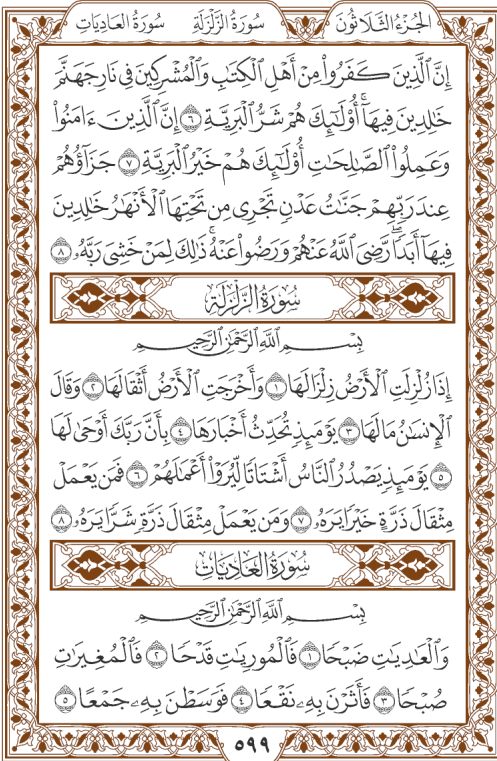 الجُزْءُ الثَّلَاثُونَ سُورَةُ الزَّلْزَلَةِ سُورَةُ العَادِيَاتِ
إِنَّ ٱلَّذِينَ كَفَرُواْ مِنْ أَهْلِ ٱلْكِتَٰبِ وَٱلْمُشْرِكِينَ فِي نَارِ جَهَنَّمَ
خَٰلِدِينَ فِيهَآۚ أُوْلَٰٓئِكَ هُمْ شَرُّ ٱلْبَرِيَّةِ ٦ إِنَّ ٱلَّذِينَ ءَامَنُواْ
وَعَمِلُواْ ٱلصَّٰلِحَٰتِ أُوْلَٰٓئِكَ هُمْ خَيْرُ ٱلْبَرِيَّةِ ٧ جَزَآؤُهُمْ
عِندَ رَبِّهِمْ جَنَّٰتُ عَدْنٍ تَجْرِي مِن تَحْتِهَا ٱلْأَنْهَٰرُ خَٰلِدِينَ
فِيهَآ أَبَدًاۖ رَّضِيَ ٱللَّهُ عَنْهُمْ وَرَضُواْ عَنْهُۚ ذَٰلِكَ لِمَنْ خَشِيَ رَبَّهُۥ ٨
سُورَةُ الزَّلْزَلَةِ
بِسْمِ ٱللَّهِ ٱلرَّحْمَٰنِ ٱلرَّحِيمِ
إِذَا زُلْزِلَتِ ٱلْأَرْضُ زِلْزَالَهَا ١ وَأَخْرَجَتِ ٱلْأَرْضُ أَثْقَالَهَا ٢ وَقَالَ
ٱلْإِنسَٰنُ مَا لَهَا ٣ يَوْمَئِذٍ تُحَدِّثُ أَخْبَارَهَا ٤ بِأَنَّ رَبَّكَ أَوْحَىٰ لَهَا
٥ يَوْمَئِذٍ يَصْدُرُ ٱلنَّاسُ أَشْتَاتًا لِّيُرَوْاْ أَعْمَٰلَهُمْ ٦ فَمَن يَعْمَلْ
مِثْقَالَ ذَرَّةٍ خَيْرًا يَرَهُۥ ٧ وَمَن يَعْمَلْ مِثْقَالَ ذَرَّةٍ شَرًّا يَرَهُۥ ٨
سُورَةُ العَادِيَاتِ
بِسْمِ ٱللَّهِ ٱلرَّحْمَٰنِ ٱلرَّحِيمِ
وَٱلْعَٰدِيَٰتِ ضَبْحًا ١ فَٱلْمُورِيَٰتِ قَدْحًا ٢ فَٱلْمُغِيرَٰتِ
صُبْحًا ٣ فَأَثَرْنَ بِهِۦ نَقْعًا ٤ فَوَسَطْنَ بِهِۦ جَمْعًا ٥
٥٩٩